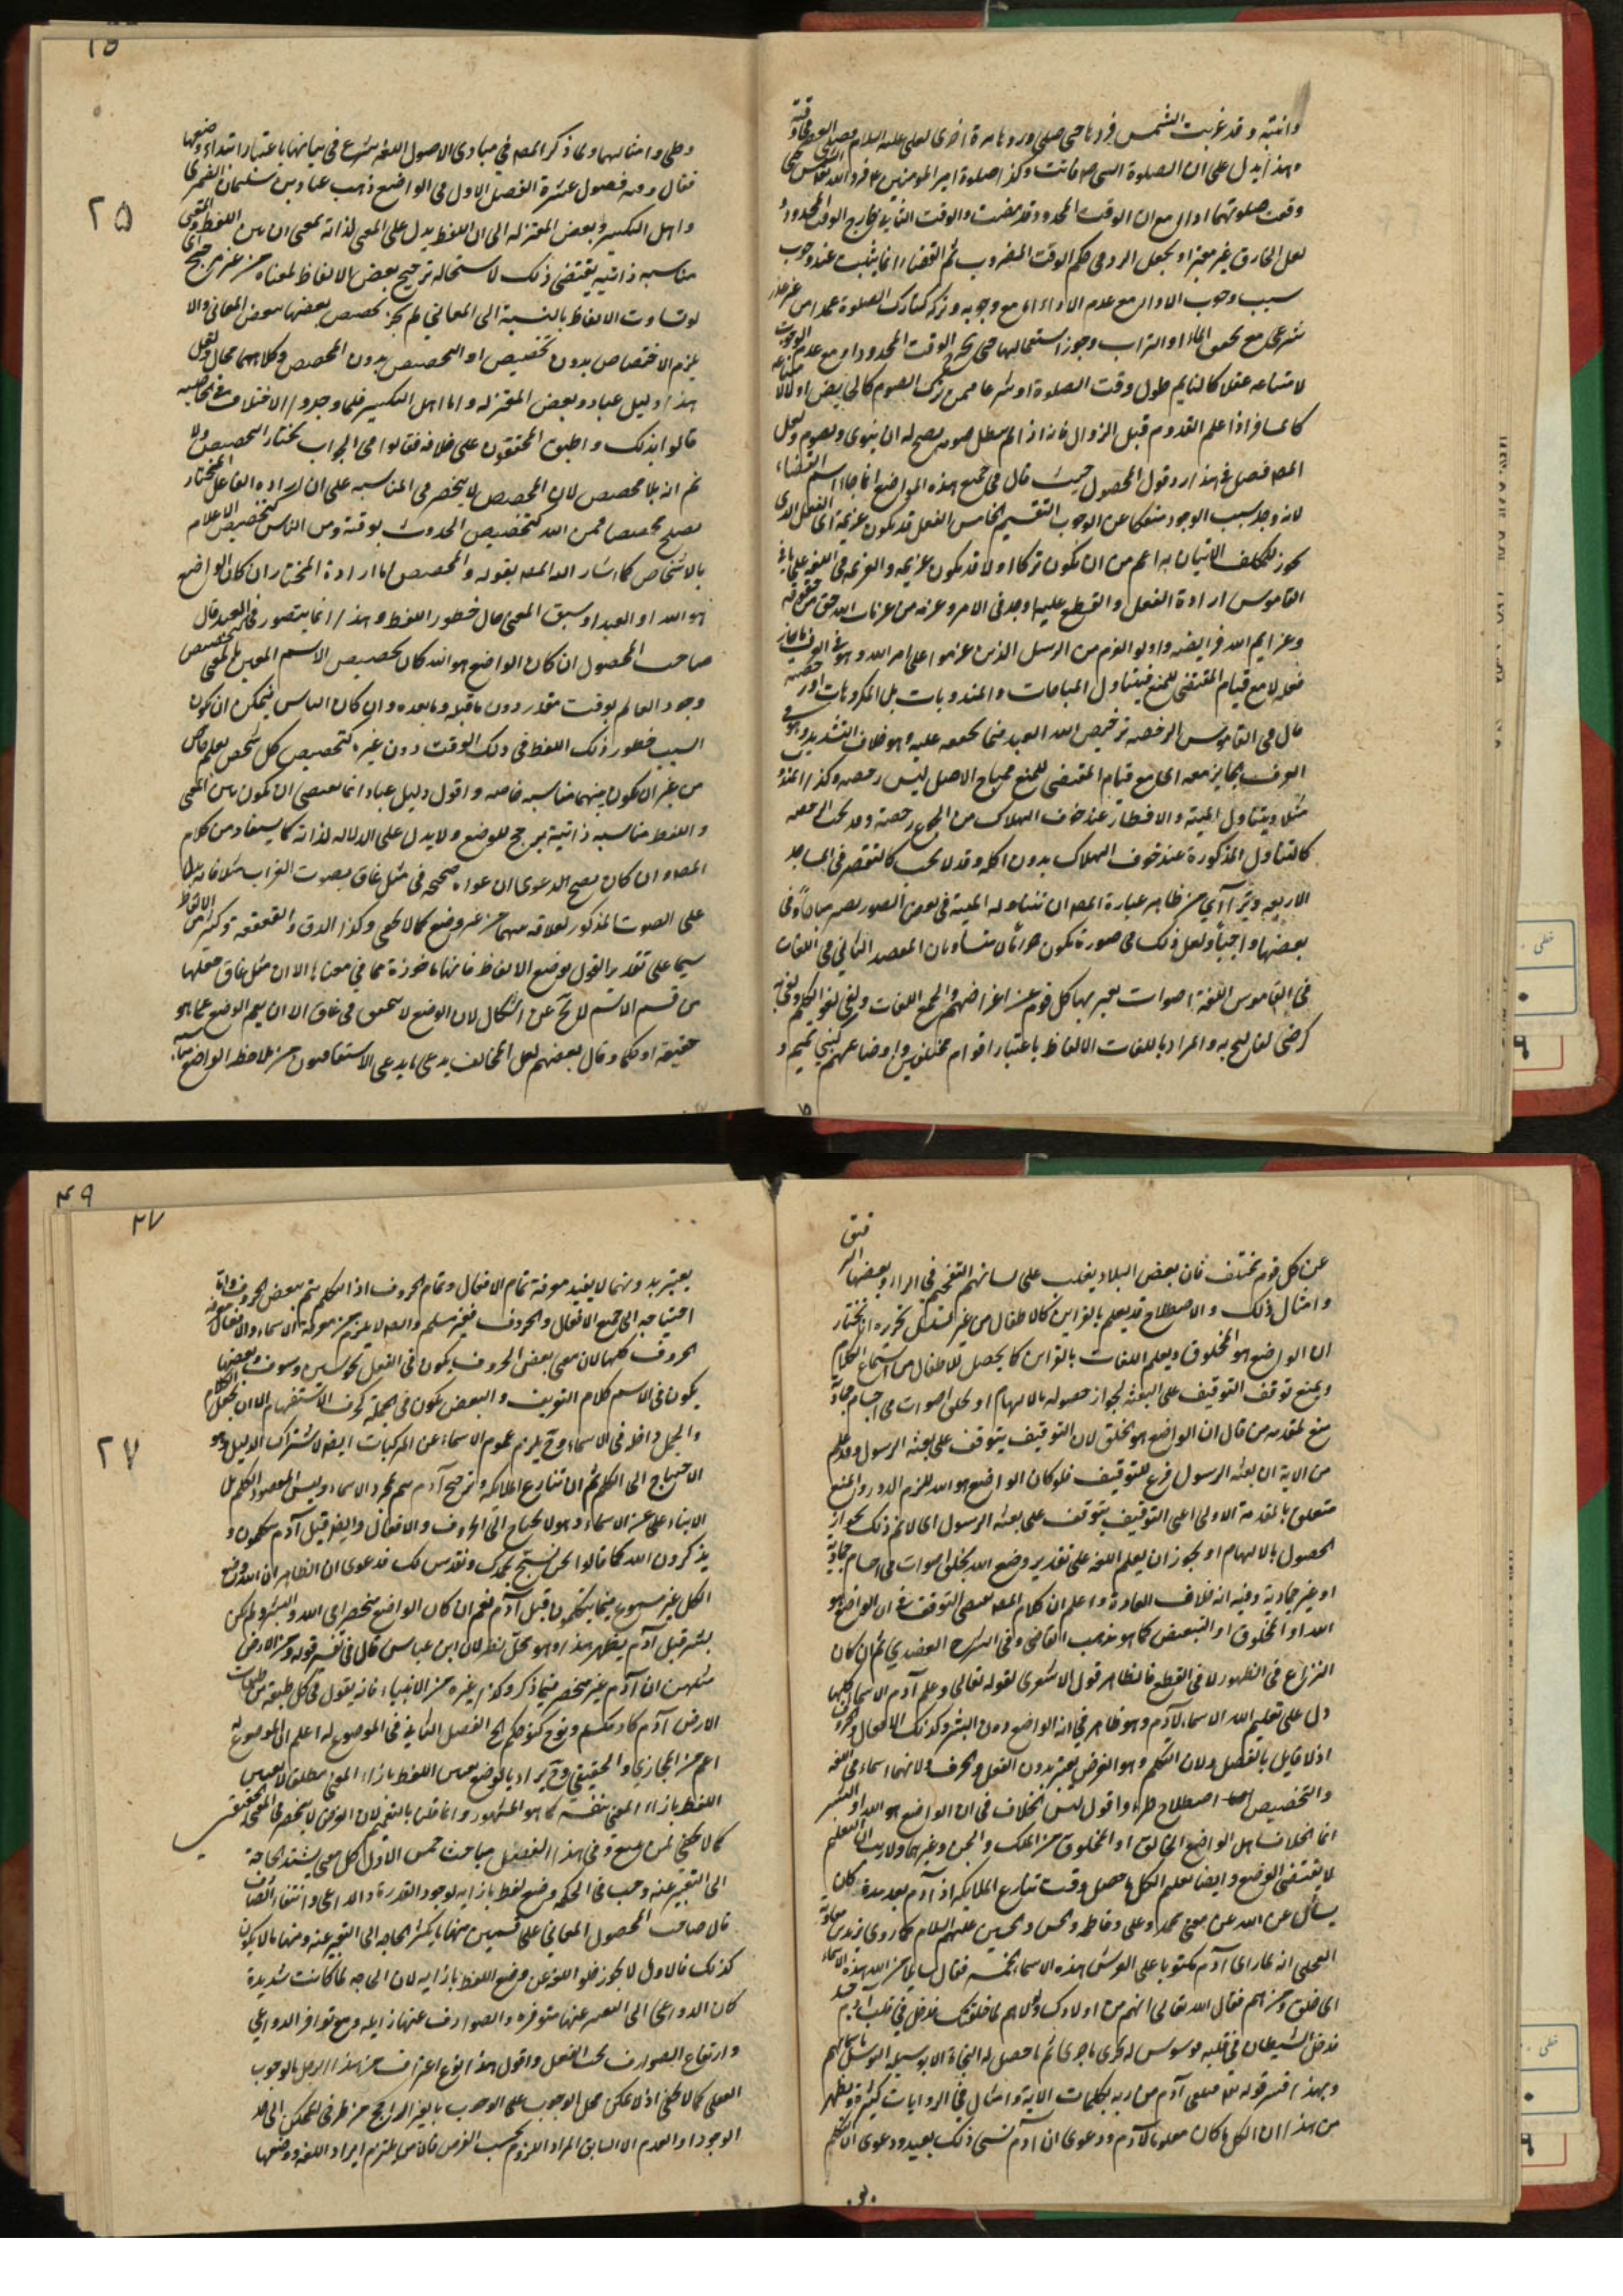 وانتبه وقد غربت الشمس فردها حتى صلى وردها مرة اخرى لعلى عليه السلام فصلى العصر فى وقته
وهذا يدل على ان الصلوة التى فاتت وكذا صلوة امير المؤمنين فرد الله الشمس حتى
وقعت صلوتهما اداء مع ان الوقت المحدود قد مضت والوقت الثانى خارج الوقت المحدود
لعل الخارق غير معتبر او يجعل الرد فى حكم الوقت المضروب ثم القضاء انما يثبت عند وجوب
سبب وجوب الاداء مع عدم الاداء اى مع وجوبه وتركه كتارك الصلوة عمدا من غير عذر
شرعى مع تحقق الماء او التراب وجوز استعمالهما حتى يخرج الوقت المحدود او مع عدم الوجوب
لامتناعه عقلا كالنايم طول وقت الصلوة او شرعا كمن ترك الصوم كالحائض اولا لامتناعه
كالمسافر اذا علم القدوم قبل الزوال فانه اذا لم يبطل صومه يصح له ان ينوى ويصوم ولعل
المصـ فصل فى هذا رد قول المحصول حيث قال فى جميع هذه المواضع انما جاء اسم القضاء
لانه وجد سبب الوجود منفكا عن الوجوب التقسيم الخامس الفعل قد يكون عزيمة اى الفعل الذى
يجوز للمكلف الاتيان به اعم من ان يكون تركا او لا قد يكون عزيمة والعزيمة فى اللغة على ما فى
القاموس ارادة الفعل والقطع عليه او جد فى الامر وعزمة من عزمات الله حق من حقوقه
وعزايم الله فرايضه واولو العزم من الرسل الذين عزموا على امر الله وهو فى العرف ما جاز
فعله لا مع قيام المقتضى للمنع فيتناول المباحات والمندوبات بل المكروهات او رخصة
قال فى القاموس الرخصة ترخيص الله العبد فيما يخففه عليه وهو خلاف التشديد وهو فى
العرف بما يجوز معه اى مع قيام المقتضى للمنع فمباح الاصل ليس رخصة وكذا المندوب
مثلا ويتناول الميتة والافطار عند خوف الهلاك من الجماع رخصة وقد تجب الرخصة
كالتناول المذكورة عند خوف الهلاك بدون اكله وقد لا تجب كالتقصير فى المساجد
الاربعة ويتراءى من ظاهر عبارة المصـ ان تناوله الميتة فى بعض الصور يصير مباحا وفى
بعضها واجبا ولعل ذلك فى صورة يكون حراما متساويان المقصد الثانى فى اللغات
فى القاموس اللغة اصوات يعبر بها كل قوم عن اغراضهم والجمع اللغات ولغى لغوا تكلم ولغى به
كرضى لغا لهج به والمراد باللغات الالفاظ باعتبار اقوام مختلفين واوضاعهم كبنى تميم و
وطى وامثالهما ولما ذكر المصـ فى مبادى الاصول اللغة شرع فى بيانها باعتبار ابتداء وضعها
فقال وفيه فصول عشرة الفصل الاول فى الواضع ذهب عباد بن سليمان الضمرى
واهل التكسير وبعض المعتزلة الى ان اللفظ يدل على المعنى لذاته بمعنى ان بين اللفظ والمعنى
مناسبة ذاتية يقتضى ذلك لاستحالة ترجيح بعض الالفاظ لمعناه من غير مرجح اى
لو تساوت الالفاظ بالنسبة الى المعانى لم يجز تخصيص بعضها ببعض المعانى والا
يلزم الاختصاص بدون تخصيص او التخصيص بدون المخصص وكلاهما محال ولعل
هذا دليل عباد وبعض المعتزلة واما اهل التكسير فلما وجدوا الاختلاف فى الخاصية
قالوا بذلك واطبق المحققون على خلافه فقالوا فى الجواب نختار التخصيص ولا
نم انه بلا مخصص لان المخصص لا ينحصر فى المناسبة على ان ارادة الفاعل المختار
يصلح مخصصا فمن الله كتخصيص الحدوث بوقته ومن الناس كتخصيص الاعلام
بالاشخاص كما اشار اليه المصـ بقوله والمخصص اما ارادة المختار ان كان الواضع
هو الله او العبد او سبق المعنى حال خطور اللفظ وهذا انما يتصور فى العبد قال
صاحب المحصول ان كان الواضع هو الله كان تخصيص الاسم المعين بالمعنى كتخصيص
وجود العالم بوقت مقدر دون ما قبله وما بعده وان كان الناس فيمكن ان يكون
السبب خطور ذلك اللفظ فى ذلك الوقت دون غيره كتخصيص كل شخص بعلم خاص
من غير ان يكون بينهما مناسبة خاصة واقول دليل عباد انما يقتضى ان يكون بين المعنى
واللفظ مناسبة ذاتية يرجح للوضع ولا يدل على الدلالة لذاته كما يستفاد من كلام
المصـ وان كان يصح الدعوى ان عواه صحيحة فى مثل غاق بصوت الغراب مثلا فانه يدل
على الصوت المذكور لعلاقة بينهما من غير وضع كما لا يخفى وكذا الدق والقعقعة وكثير من الالفاظ
سيما على تقدير القول بوضع الالفاظ فانها ماخوذة مما فى معناها الا ان مثل غاق جعلها
من قسم الاسم لا يخ عن اشكال لان الوضع لا يتحقق فى غاق الا ان يعم الوضع عما هو
حقيقة او حكما وقال بعضهم لعل المخالف يدعى ما يدعى الاشتقاقيون من ملاحظة الواضع مناسبة
عن كل قوم مختلف فان بعض البلاد يغلب على لسانهم التفخيم فى الراء وبعضها الترقيق
وامثال ذلك والاصطلاح قد يعلم بالقراين كالاطفال من غير تسلسل تحرره انا نختار
ان الواضع هو المخلوق ويعلم اللغات بالقراين كما يحصل للاطفال من استماع الكلام
ويمنع توقف التوقيف على البعثة لجواز حصوله بالالهام او بخلق اصوات فى اجسام جمادية
منع لمقدمة من قال ان الواضع هو الخلق لان التوقيف يتوقف على بعثة الرسول وقد علم
من الاية ان بعثة الرسول فرع للتوقيف فلو كان الواضع هو الله للزم الدور والمنع
متعلق بالمقدمة الاولى اعنى التوقيف يتوقف على بعثة الرسول اى لا نم ذلك لجواز
الحصول بالالهام او يجوز ان يعلم اللغة على تقدير وضع الله بخلق اصوات فى اجسام جمادية
او غير جمادية وفيه انه خلاف العادة واعلم ان كلام المصـ يقتضى التوقف فى ان الواضع هو
الله او المخلوق او التبعيض كما هو مذهب القاضى وفى الشرح العضدى ثم ان كان
النزاع فى الظهور لا فى القطع فالظاهر قول الاشعرى لقوله تعالى وعلم آدم الاسماء كلها
دل على تعليم الله الاسماء لآدم وهو ظاهر فى انه الواضع دون البشر وكذلك الافعال والحروف
اذ لا قايل بالفصل ولان التكلم وهو الغرض يعتبر بدون الفعل والحرف ولانهما اسماء فى اللغة
والتخصيص اصطلاح طرء واقول ليس الخلاف فى ان الواضع هو الله او البشر
انما الخلاف هل الواضع الخالق او المخلوق من الملك والجن وغيرهما ولا ريب ان التعليم
لا يقتضى الوضع وايضا تعليم الكل ما حصل وقت تنازع الملايكة اذ آدم بعد مدة كان
يسأل عن الله عن معنى محمد وعلى وفاطمة والحسن والحسين عليهم السلام كما روى يزيد بن معاوية
العجلى انه لما راى آدم مكتوبا على العرش هذه الاسماء الخمسة فقال يا رب من الله هذه الاسماء
اى خلق من هم فقال الله تعالى انهم من اولادك ولولاهم لما خلقتك فدخل فى قلب آدم حسد
فدخل الشيطان فى قلبه فوسوس له فجرى ما جرى ثم ما حصل له النجاة الا بوسيلة التوسل باسمائهم
وبهذا فسر قوله تعـ فتلقى آدم من ربه بكلمات الاية وامثال هذه الروايات كثيرة ويظهر
من هذا ان الكل ما كان معلوما لآدم ودعوى ان آدم نسى ذلك بعيد ودعوى ان التكلم
يعتبر بدونهما لا يفيد معرفة تمام الافعال وتمام الحروف اذ التكلم يتم ببعض الحروف واما
احتياجه الى جميع الافعال والحروف فغير مسلم وايضا لا يلزم من معرفة الاسماء والافعال معرفة
الحروف كلها لان معنى بعض الحروف يكون فى الفعل نحو سين وسوف وبعضها
يكون فى الاسم كلام التعريف والبعض يكون فى الجملة كحرف الاستفهام الا ان يجعل الكلام
والجمل داخلة فى الاسماء وح يلزم عموم الاسماء عن المركبات ايضا لاشتراك الدليل وهو
الاحتياج الى التكلم ثم ان تنازع الملايكة وترجيح آدم بهم بمجرد الاسماء وليس المقصود التكلم بل
الانباء على عن الاسماء وهو لا يحتاج الى الحروف والافعال وايضا قبل آدم يتكلمون و
يذكرون الله كما قالوا نحن نسبح بحمدك ونقدس لك فدعوى ان الظاهر ان الله وضع
الكل غير مسموع فيما يتكلمون قبل آدم نعم ان كان الواضع منحصرا فى الله والبشر ولم يكن
بشر قبل آدم يظهر هذا وهو محل نظر لان ابن عباس قال فى تفسير قوله ومن الارض
مثلهن ان آدم غير منحصر فيما ذكر وكذا غيره من الانبياء فانه يقول فى كل طبقة من طبقات
الارض آدم كآدمكم ونوح كنوحكم الخ الفصل الثانى فى الموضوع له اعلم ان الموضوع له
اعم من المجازى والحقيقى وح يراد بالوضع تعيين اللفظ بازاء المعنى مطلقا لا تعيين
اللفظ بازاء المعنى بنفسه كما هو المشهور وانما قلنا بالتعميم لان العرض لا ينحصر فى المعنى الحقيقى
كما لا يخفى لمن تتبع وفى هذا الفصل مباحث خمس الاول كل معنى يشتد الحاجة
الى التعبير عنه وجب فى الحكمة وضع لفظ بازايه لوجود القدرة والداعى وانتفاء الصارف
قال صاحب المحصول المعانى على قسمين منها ما يكثر الحاجة الى التعبير عنه ومنها ما لا يكون
كذلك فالاول لا يجوز خلو اللغة عن وضع اللفظ بازايه لان الحاجة لما كانت شديدة
كان الدواعى الى التعبير عنها متوفرة والصوارف عنها زايلة ومع توافر الدواعى
وارتفاع الصوارف يجب الفعل واقول هذا نوع اعتراف من هذا الرجل بالوجوب
العقلى كما لا يخفى اذ لا يمكن حمل الوجوب على الوجوب بالغير الراجح من طرفى الممكن الى حد
الوجود او العدم الا السابق المراد اللزوم بحسب الفرض فالناس ملتزم ايراد اللغة ووضعها
٢٥
٢٧
٤٩
٢٧